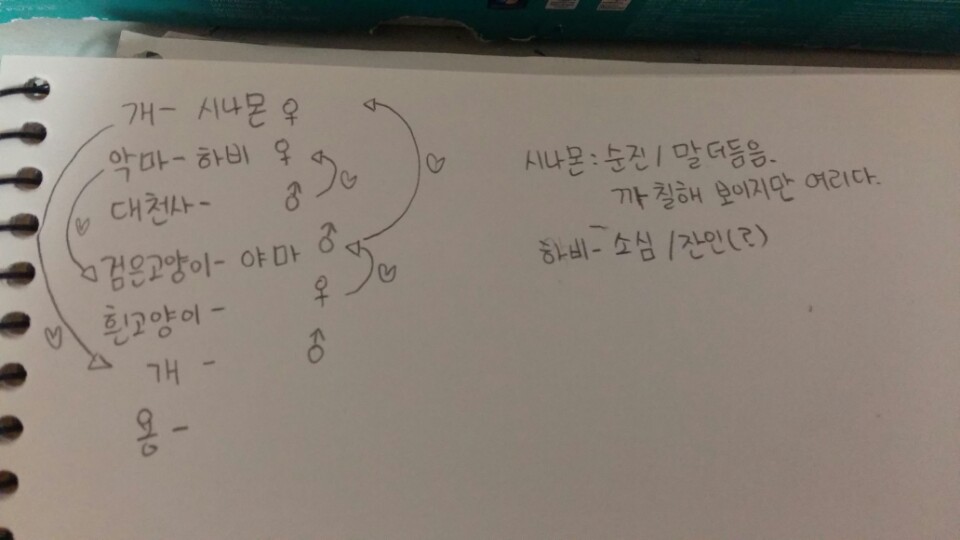 개 - 시나몬 ♀
악마 - 하비 ♀
대천사 - ♂
검은고양이 - 야마 ♂
흰고양이 - ♀
개 - ♂
용 -
시나몬 : 순진 / 말더듬음.
까칠해 보이지만 여리다.
하비 - 소심 / 잔인(?)